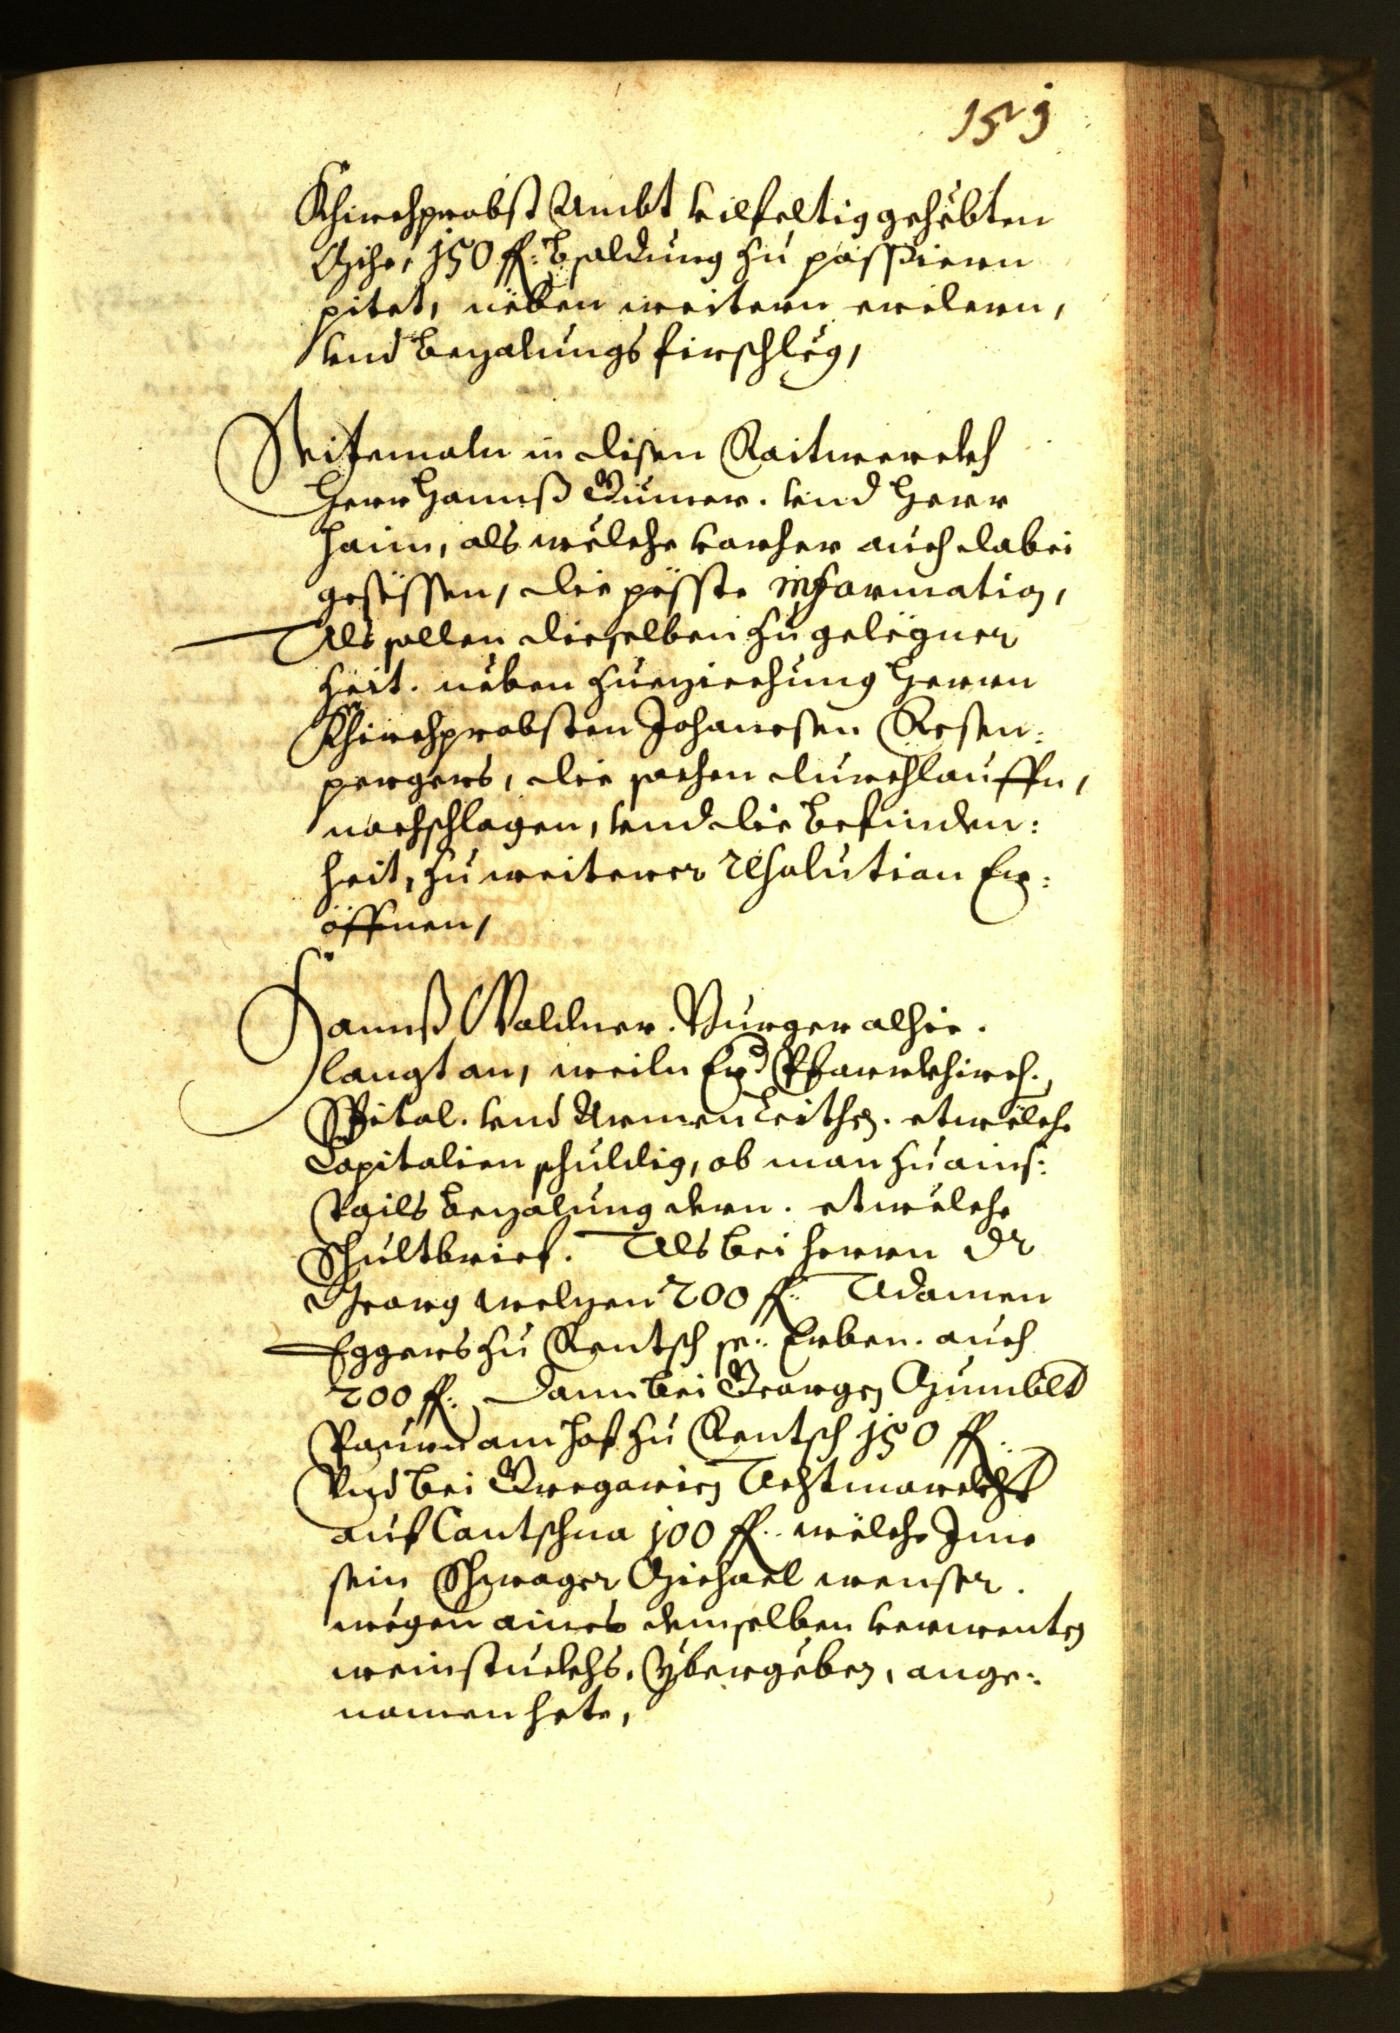 Khirchprobst Ambt vilfeltig gehebten
Mihe, 150 fl: bsoldung zu passiern
pitet, neben weitern ersezen,
vnd bezalungs firschleg,
Seitemaln in disen Raitwerckh
Herr Hannß Gumer. vnd Herr
Haim, als welche vorher auch dabei
gesessen, die pesste information,
Als sollen dieselben zu gelegner
Zeit. neben zueziechung Herrn
Khirchprobsten Johannsen Rosen:
pergers, die sachen durchlauffn,
nachschlagen, vnd die befinden:
heit, zu weiterer resolution Er:
öffnen,
Hannß Waldner. Burger alhie.
langt an, weiln Er Pfarrkhirch.
Spital. vnd Armen Leithen. etweliche
Capitalien schuldig, ob man zu ains:
thails bezalung dern. etweliche
Schultbrief. Als bei Herrn Dr
Georg Melzen 200 fl: Adamen
Eggers zu Rentsch se: Erben. auch
200 fl: Dann bei Georgen Gumbld
Paurn am Hof zu Rentsch 150 fl:
Vnd bei Gregorien
auf Cantschna 100 fl: welche Ime
sein Schwager Michael
wegen aines demselben verwenten
weinstuckhs. Ybergeben, ange:
nomen hete,